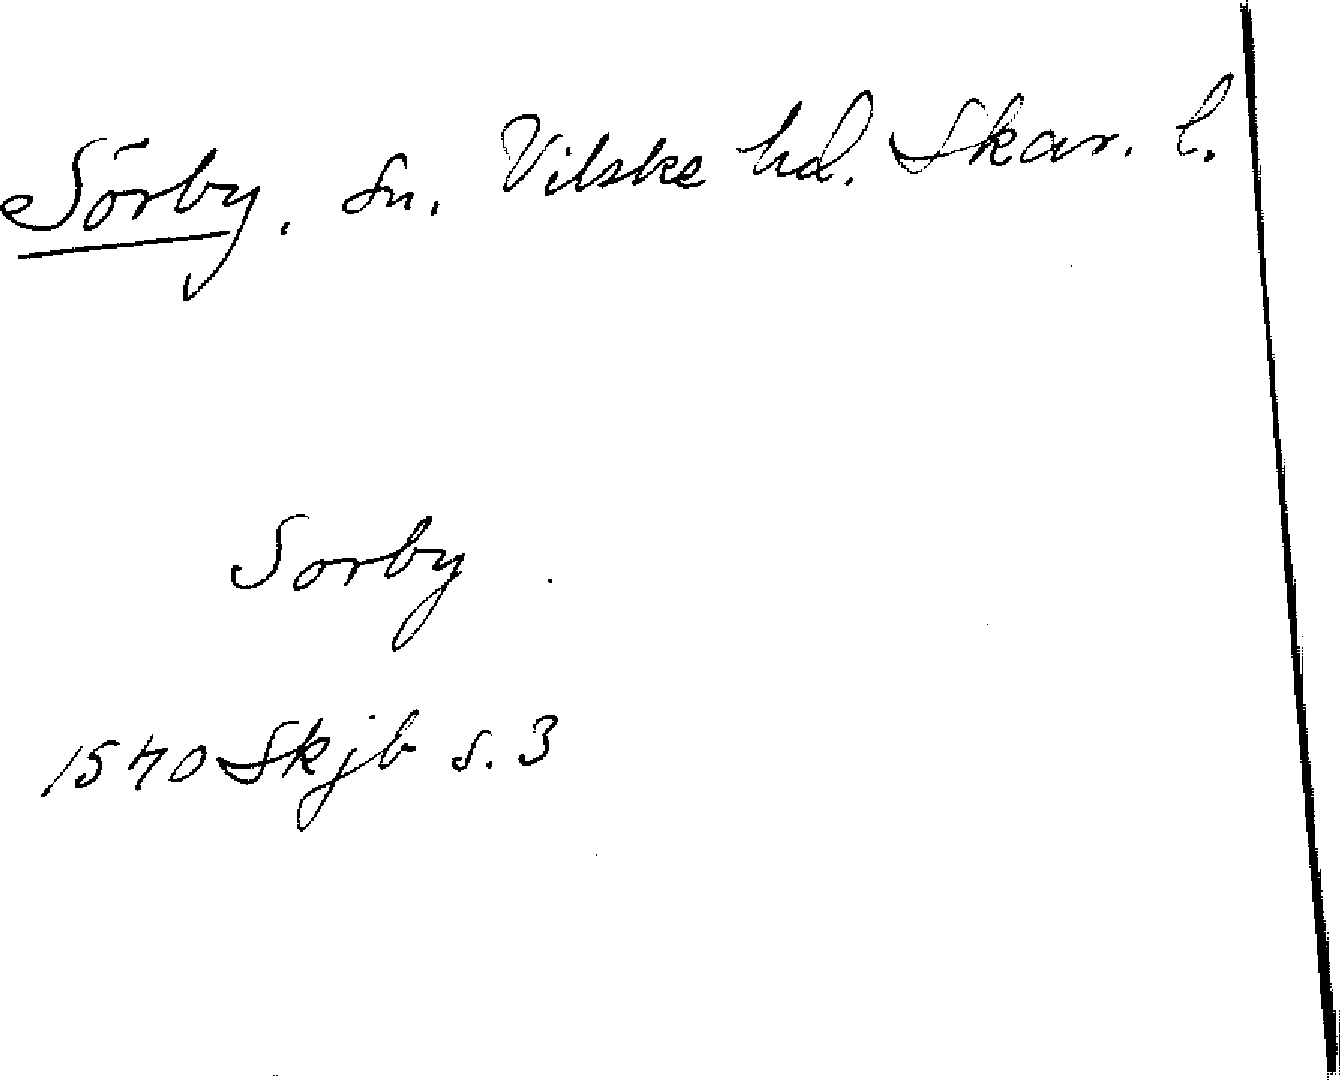 Sörby. sn. Vilske hd. Skar. l.
Sorby
1540 Skjb s. 3